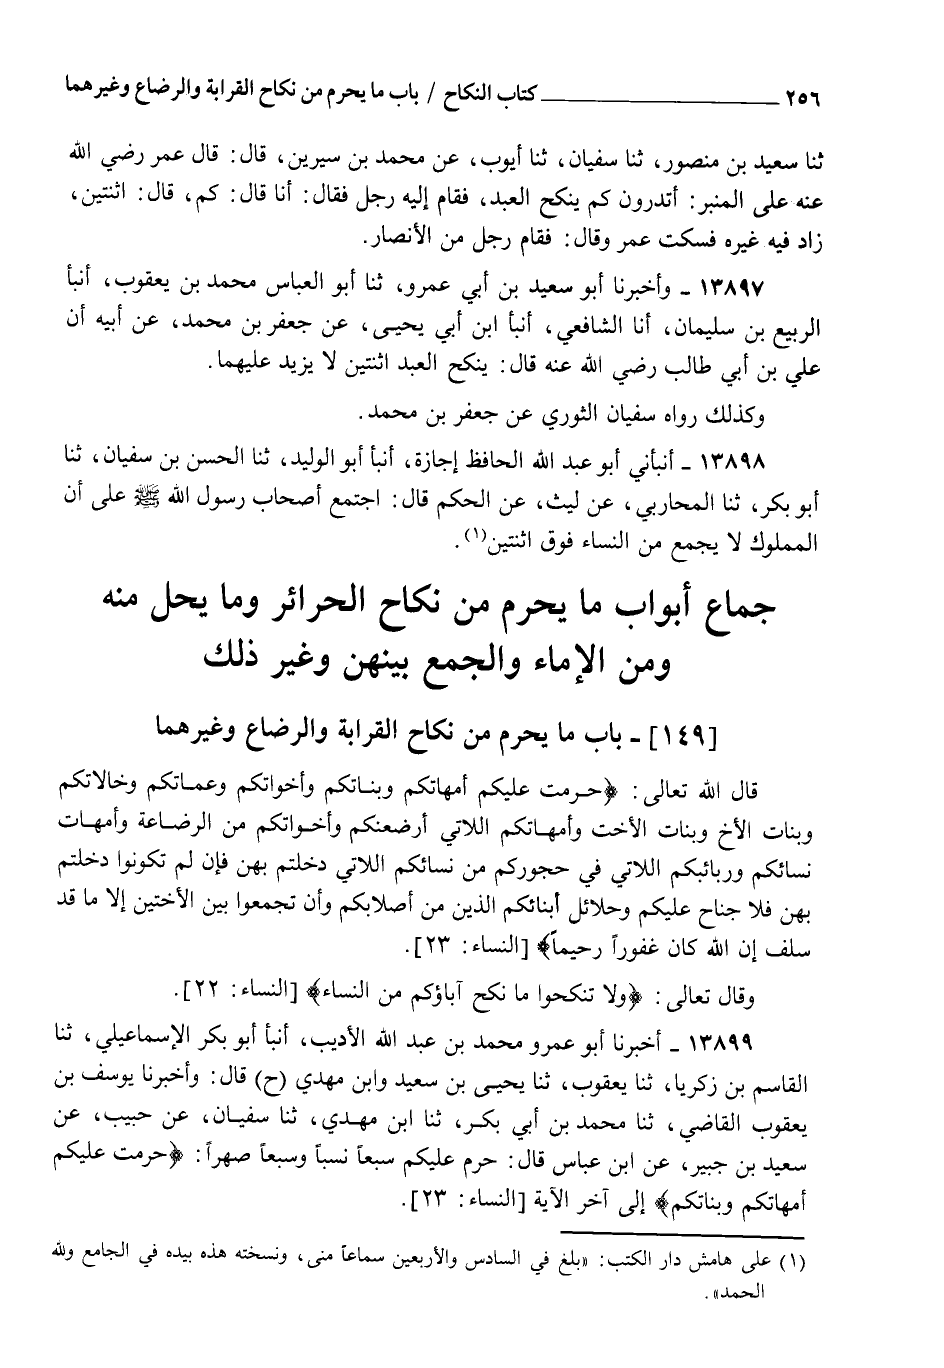 ٢٥٦ ــــــــــــــــ كتاب النكاح / باب ما يحرم من نكاح القرابة والرضاع وغيرهما
ثنا سعيد بن منصور، ثنا سفيان، ثنا أيوب، عن محمد بن سيرين، قال: قال عمر رضي الله
عنه على المنبر: أتدرون كم ينكح العبد، فقام إليه رجل فقال: أنا قال: كم، قال: اثنتين،
زاد فيه غيره فسكت عمر وقال: فقام رجل من الأنصار.
١٣٨٩٧ ـ وأخبرنا أبو سعيد بن أبي عمرو، ثنا أبو العباس محمد بن يعقوب، أنبأ
الربيع بن سليمان، أنا الشافعي، أنبأ ابن أبي يحيى، عن جعفر بن محمد، عن أبيه أن
علي بن أبي طالب رضي الله عنه قال: ينكح العبد اثنتين لا يزيد عليهما.
وكذلك رواه سفيان الثوري عن جعفر بن محمد.
١٣٨٩٨ ـ أنبأني أبو عبد الله الحافظ إجازة، أنبأ أبو الوليد، ثنا الحسن بن سفيان، ثنا
أبو بكر، ثنا المحاربي، عن ليث، عن الحكم قال: اجتمع أصحاب رسول الله ﷺ على أن
المملوك لا يجمع من النساء فوق اثنتين(١).
جماع أبواب ما يحرم من نكاح الحرائر وما يحل منه
ومن الإماء والجمع بينهن وغير ذلك
[١٤٩] ـ باب ما يحرم من نكاح القرابة والرضاع وغيرهما
قال الله تعالى: ﴿حرمت عليكم أمهاتكم وبناتكم وأخواتكم وعماتكم وخالاتكم
وبنات الأخ وبنات الأخت وأمهاتكم اللاتي أرضعنكم وأخواتكم من الرضاعة وأمهات
نسائكم وربائبكم اللاتي في حجوركم من نسائكم اللاتي دخلتم بهن فإن لم تكونوا دخلتم
بهن فلا جناح عليكم وحلائل أبنائكم الذين من أصلابكم وأن تجمعوا بين الأختين إلا ما قد
سلف إن الله كان غفوراً رحيماً﴾ [النساء: ٢٣].
وقال تعالى: ﴿ولا تنكحوا ما نكح آباؤكم من النساء﴾ [النساء: ٢٢].
١٣٨٩٩ ـ أخبرنا أبو عمرو محمد بن عبد الله الأديب، أنبأ أبو بكر الإسماعيلي، ثنا
القاسم بن زكريا، ثنا يعقوب، ثنا يحيى بن سعيد وابن مهدي (ح) قال: وأخبرنا يوسف بن
يعقوب القاضي، ثنا محمد بن أبي بكر، ثنا ابن مهدي، ثنا سفيان، عن حبيب، عن
سعيد بن جبير، عن ابن عباس قال: حرم عليكم سبعاً نسباً وسبعاً صهراً: ﴿حرمت عليكم
أمهاتكم وبناتكم﴾ إلى آخر الآية [النساء: ٢٣].
(١) على هامش دار الكتب: «بلغ في السادس والأربعين سماعاً منى، ونسخته هذه بيده في الجامع ولله
الحمد».